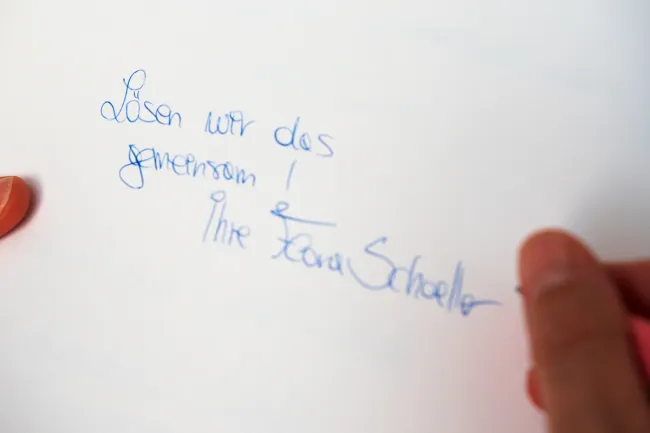 Lösen wir das
gemeinsam!
Ihre Flora Schoeller